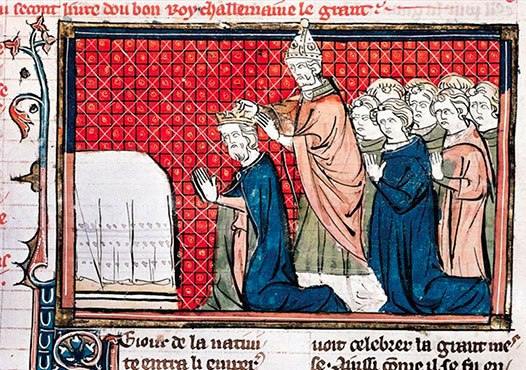 secont liure dou bon Roy challemaine le grant
Giour de la natiui
te entra li emper
uoit celebrer la grant me
se. Ainsi come il se fu en